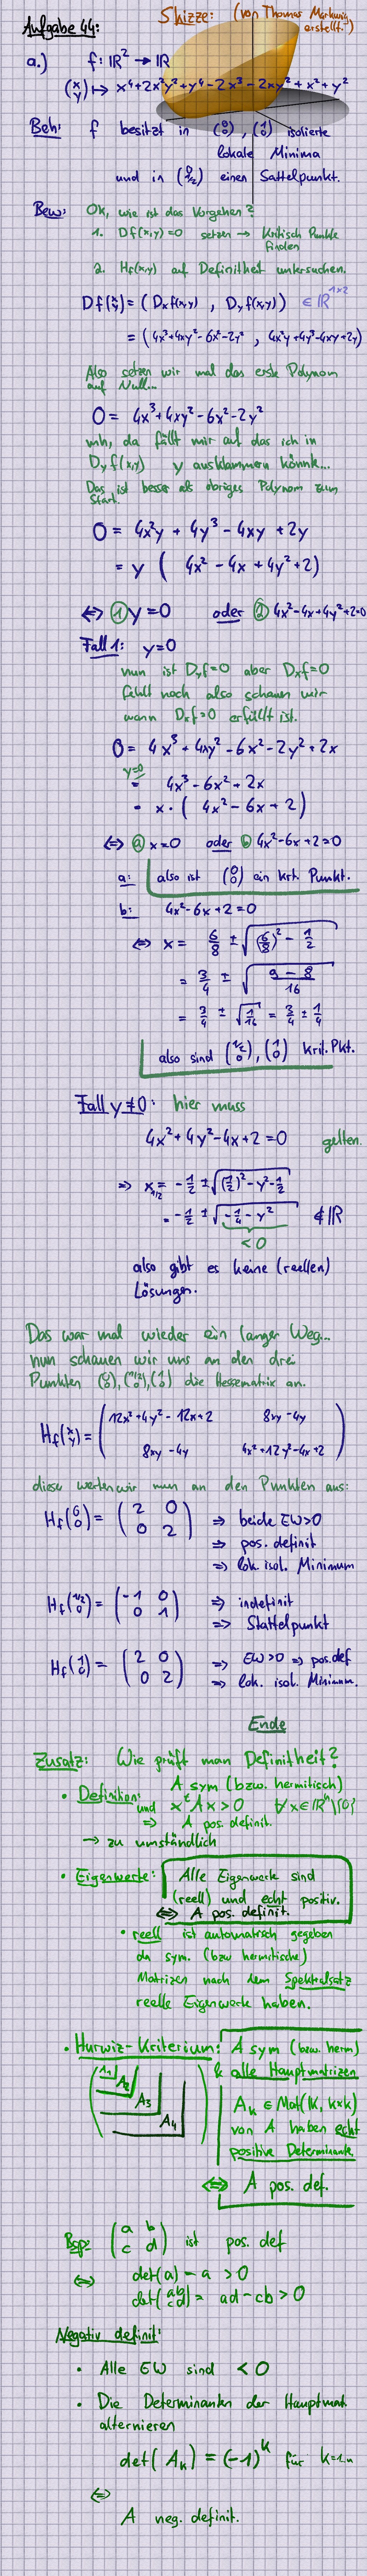 Aufgabe 44:
Skizze: (von Thomas Markwig erstellt.)
a.) f: ℝ² → ℝ
(x y) ↦ x⁴+2x²y²+y⁴-2x³-2xy²+x²+y²
Beh: f besitzt in (0 0), (1 0) isolierte
lokale Minima
und in (1/2 0) einen Sattelpunkt.
Bew: Ok, wie ist das Vorgehen?
1. Df(x,y)=0 setzen → kritisch Punkte
finden
2. Hf(x,y) auf Definitheit untersuchen.
Df(x y) = (Dxf(x,y), Dyf(x,y)) ∈ ℝ^1×2
= (4x³+4xy²-6x²-2y², 4x²y+4y³-4xy+2y)
Also setzen wir mal das erste Polynom
auf Null...
0 = 4x³+4xy²-6x²-2y²
mh, da fällt mir auf das ich in
Dyf(x,y) y ausklammern könnte...
Das ist besser als obriges Polynom zum
Start.
0 = 4x²y + 4y³ - 4xy + 2y
= y ( 4x² - 4x + 4y²+2)
⇔ ① y=0 oder ② 4x²-4x+4y²+2=0
Fall 1: y=0
nun ist Dyf=0 aber Dxf=0
fehlt noch also schauen wir
wann Dxf=0 erfüllt ist.
0 = 4x³ + 4xy² - 6x² - 2y² + 2x
y=0
= 4x³ - 6x² + 2x
= x · ( 4x² - 6x + 2)
⇔ ⓐ x=0 oder ⓑ 4x²-6x+2=0
a: also ist (0 0) ein krt. Punkt.
b: 4x²-6x+2=0
⇔ x = 6/8 ± √((6/8)² - 1/2)
= 3/4 ± √((9-8)/16)
= 3/4 ± √(1/16) = 3/4 ± 1/4
also sind (1/2 0), (1 0) krit. Pkt.
Fall y≠0: hier muss
4x²+4y²-4x+2=0 gelten.
⇒ x1/2 = -1/2 ± √((1/2)²-y²-1/2)
= -1/2 ± √(-1/4 - y²) ∉ ℝ
< 0
also gibt es keine (reellen)
Lösungen.
Das war mal wieder ein langer Weg...
nun schauen wir uns an den drei
Punkten (0 0), (1/2 0), (1 0) die Hessematrix an.
Hf(x y) = ( 12x²+4y²-12x+2 8xy-4y
8xy-4y 4x²+12y²-4x+2 )
diese werten wir nun an den Punkten aus:
Hf(0 0) = (2 0 ⇒ beide EW>0
0 2) ⇒ pos. definit
⇒ lok. isol. Minimum
Hf(1/2 0) = (-1 0 ⇒ indefinit
0 1) ⇒ Stattelpunkt
Hf(1 0) = (2 0 ⇒ EW>0 ⇒ pos.def
0 2) ⇒ lok. isol. Minimum.
Ende
Zusatz: Wie prüft man Definitheit?
• Definition: A sym (bzw. hermitisch)
und xᵗAx>0 ∀x∈ℝⁿ\{0}
⇒ A pos. definit.
→ zu umständlich
• Eigenwerte: Alle Eigenwerte sind
(reell) und echt positiv.
⇔ A pos. definit.
• reell ist automatisch gegeben
da sym. (bzw hermitische)
Matrizen nach dem Spektralsatz
reelle Eigenwerte haben.
• Hurwiz-Kriterium: A sym (bzw. herm)
& alle Hauptmatrizen
A1 A2 A3 A4
Ak ∈ Mat(K, k×k)
von A haben echt
positive Determinante
⇔ A pos. def.
Bsp: (a b c d) ist pos. def
⇔ det(a) = a > 0
det(a b c d) = ad-cb > 0
Negativ definit:
• Alle EW sind < 0
• Die Determinanten der Hauptmat.
alternieren
det( Ak ) = (-1)^k für k=1..n
⇔
A neg. definit.